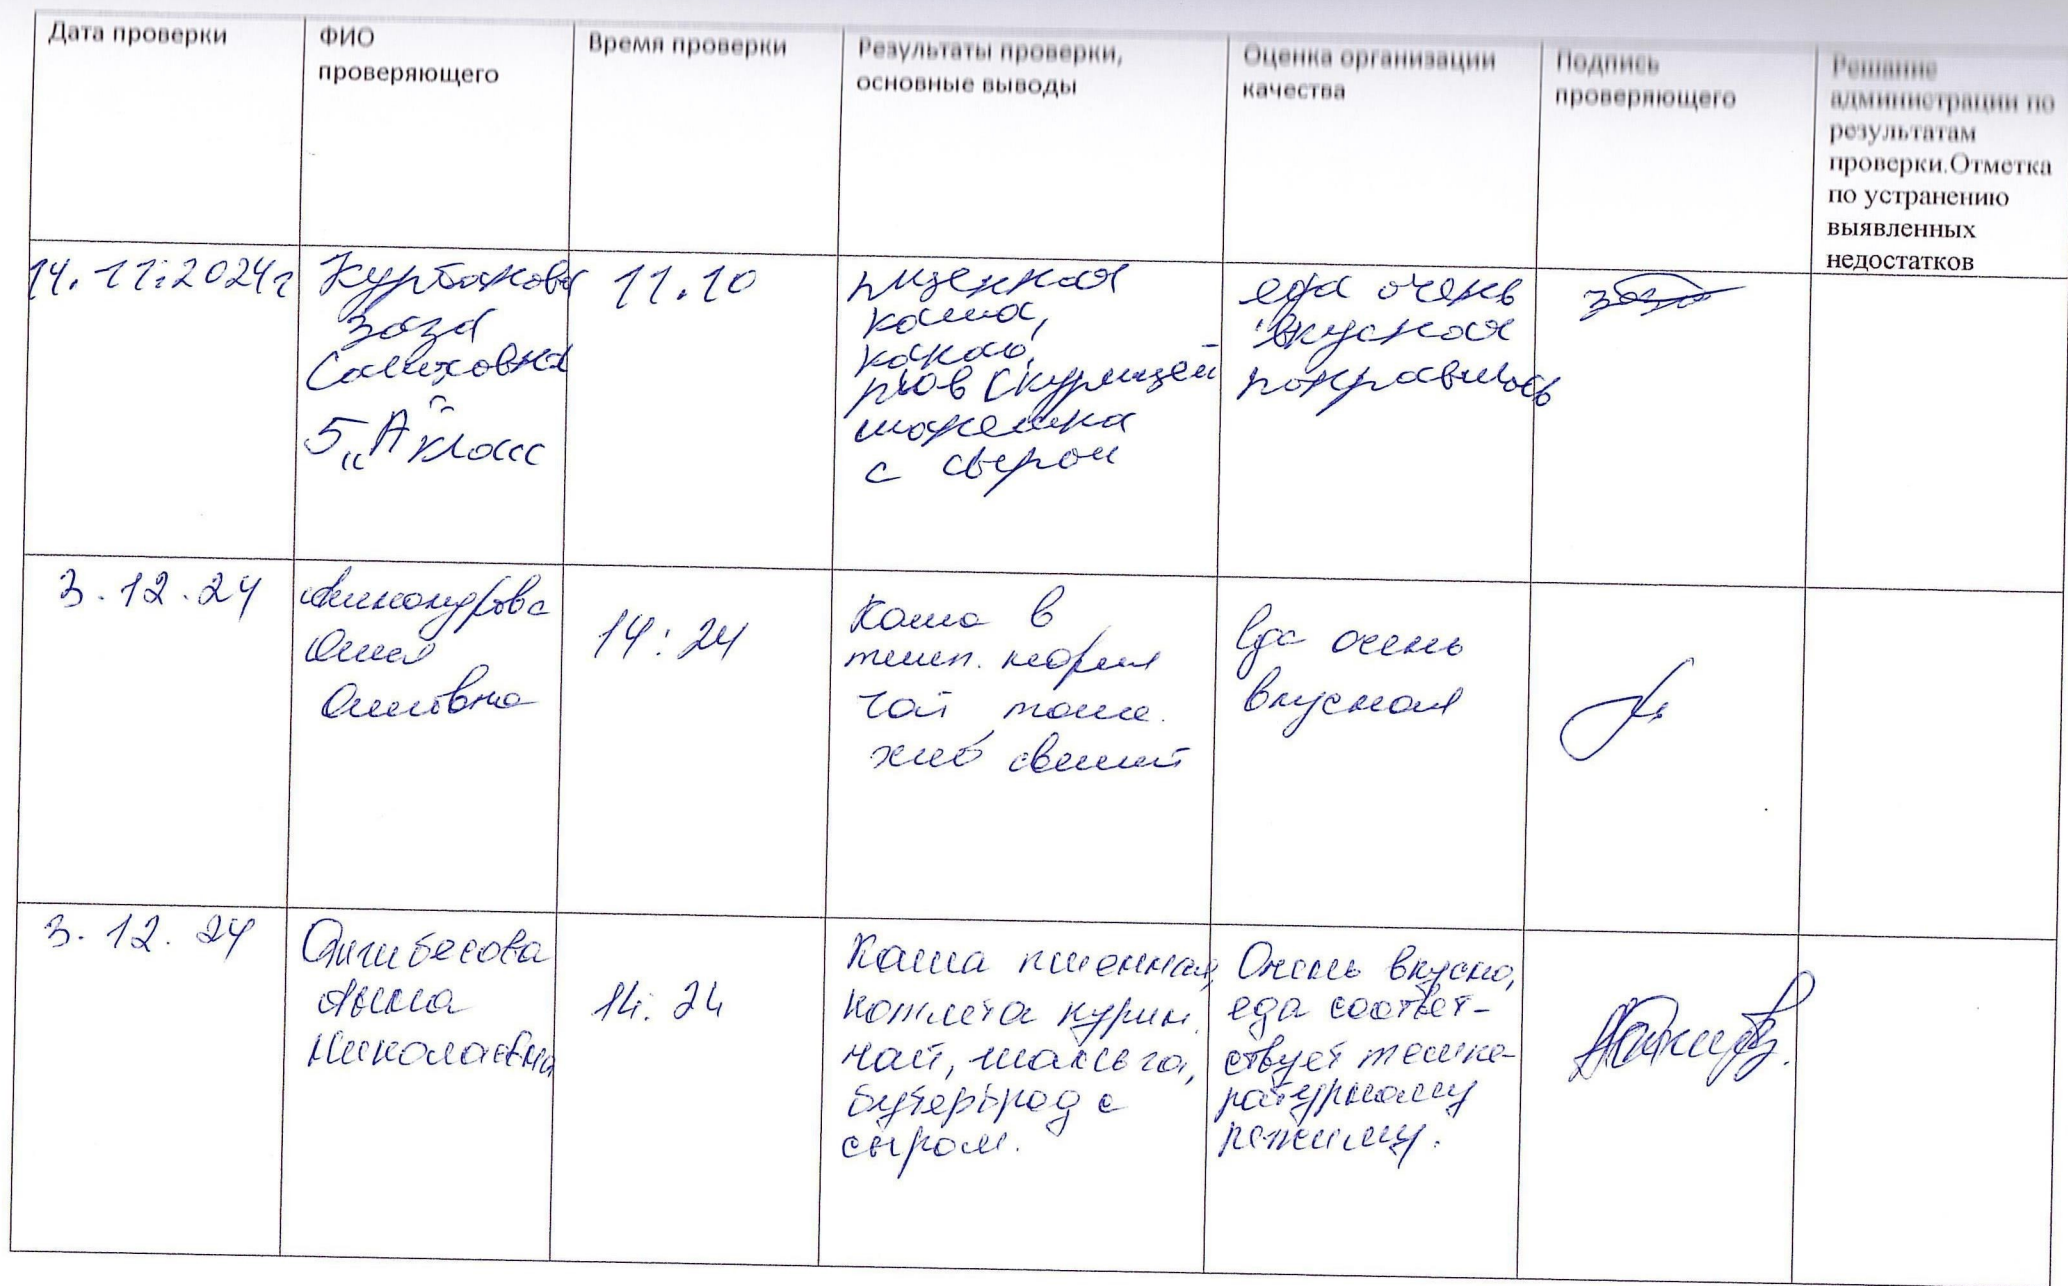 Дата проверки
ФИО
проверяющего
Время проверки
Результаты проверки,
основные выводы
Оценка организации
качества
Подпись
проверяющего
Решание
администрации по
результатам
проверки.Отметка
по устранению
выявленных
недостатков
14.11.2024г
Курбанова
Заза
Салиховна
5 „А“ класс
11.10
пшенная
каша,
какао,
плов с курицей
с сыром
еда очень
вкусная
понравилось
3.12.24
14:24
Каша в
темп. норма
чай тоже.
хлеб свежий
Еда очень
вкусная
3.12.24
Николаевна
14:24
Каша пшенная,
котлета курин.
чай,
бутерброд с
сыром.
Очень вкусно,
еда соответ-
ствует темпе-
ратурному
режиму.